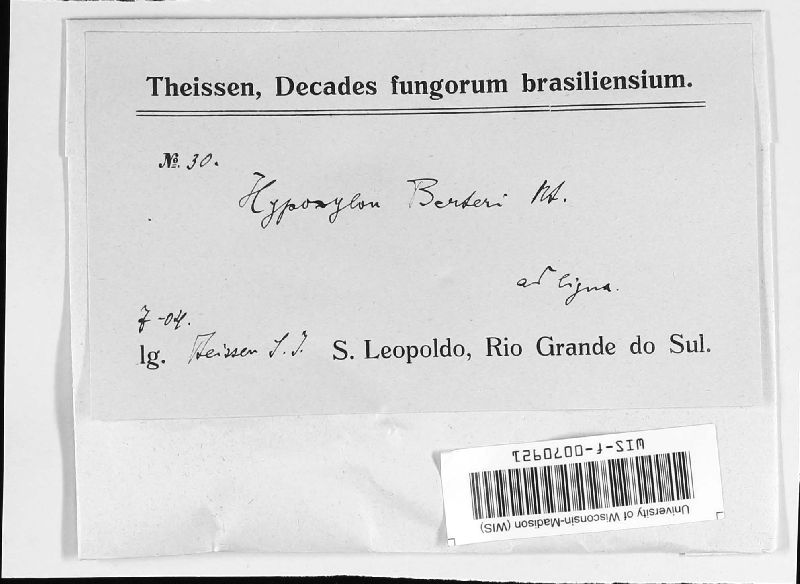 Theissen, Decades fungorum brasiliensium.
№. 30.
Hypoxylon Berteri Mt.
ad ligna.
7-04.
lg. Theissen S. J. S. Leopoldo, Rio Grande do Sul.
WIS-f-0070921
University of Wisconsin-Madison (WIS)